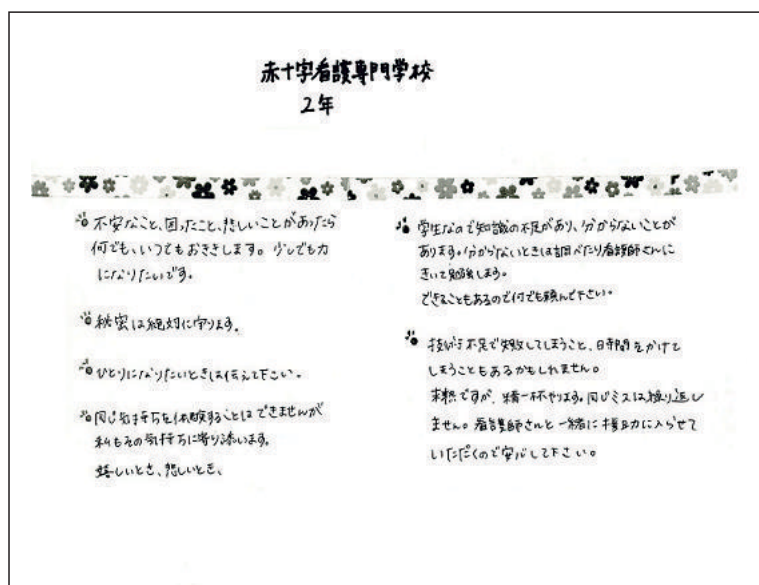 赤十字看護専門学校
2年
不安なこと、困ったこと、悲しいことがあったら
何でも、いつでもおききします。少しでも力
になりたいです。
秘密は絶対に守ります。
ひとりになりたいときは伝えて下さい。
同じ気持ちを体験することはできませんが
私もその気持ちに寄り添います。
嬉しいとき、悲しいとき、
学生なので知識の不足があり、分からないことが
あります。分からないときは調べたり看護師さんに
きいて勉強します。
できることもあるので何でも頼んで下さい。
技術不足で失敗してしまうこと、時間をかけて
しまうこともあるかもしれません。
未熟ですが、精一杯やります。同じミスは繰り返し
ません。看護師さんと一緒に援助に入らせて
いただくので安心して下さい。